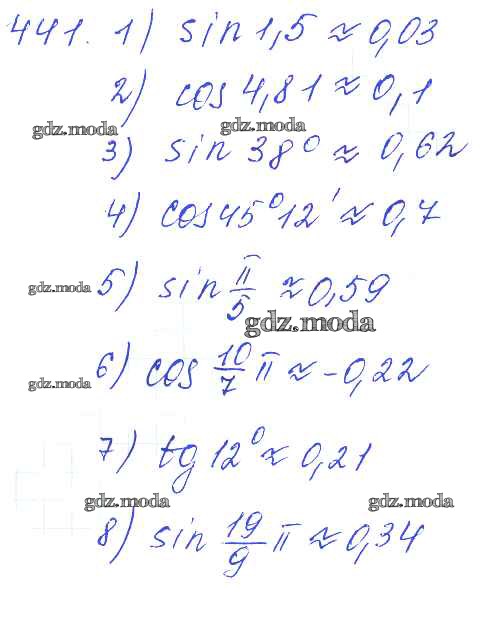 441. 1) sin 1,5 ≈ 0,03
2) cos 4,81 ≈ 0,1
gdz.moda gdz.moda
3) sin 38° ≈ 0,62
4) cos 45°12' ≈ 0,7
gdz.moda 5) sin π/5 ≈ 0,59
gdz.moda
gdz.moda 6) cos 10/7 π ≈ -0,22
7) tg 12° ≈ 0,21
gdz.moda gdz.moda
8) sin 19/9 π ≈ 0,34